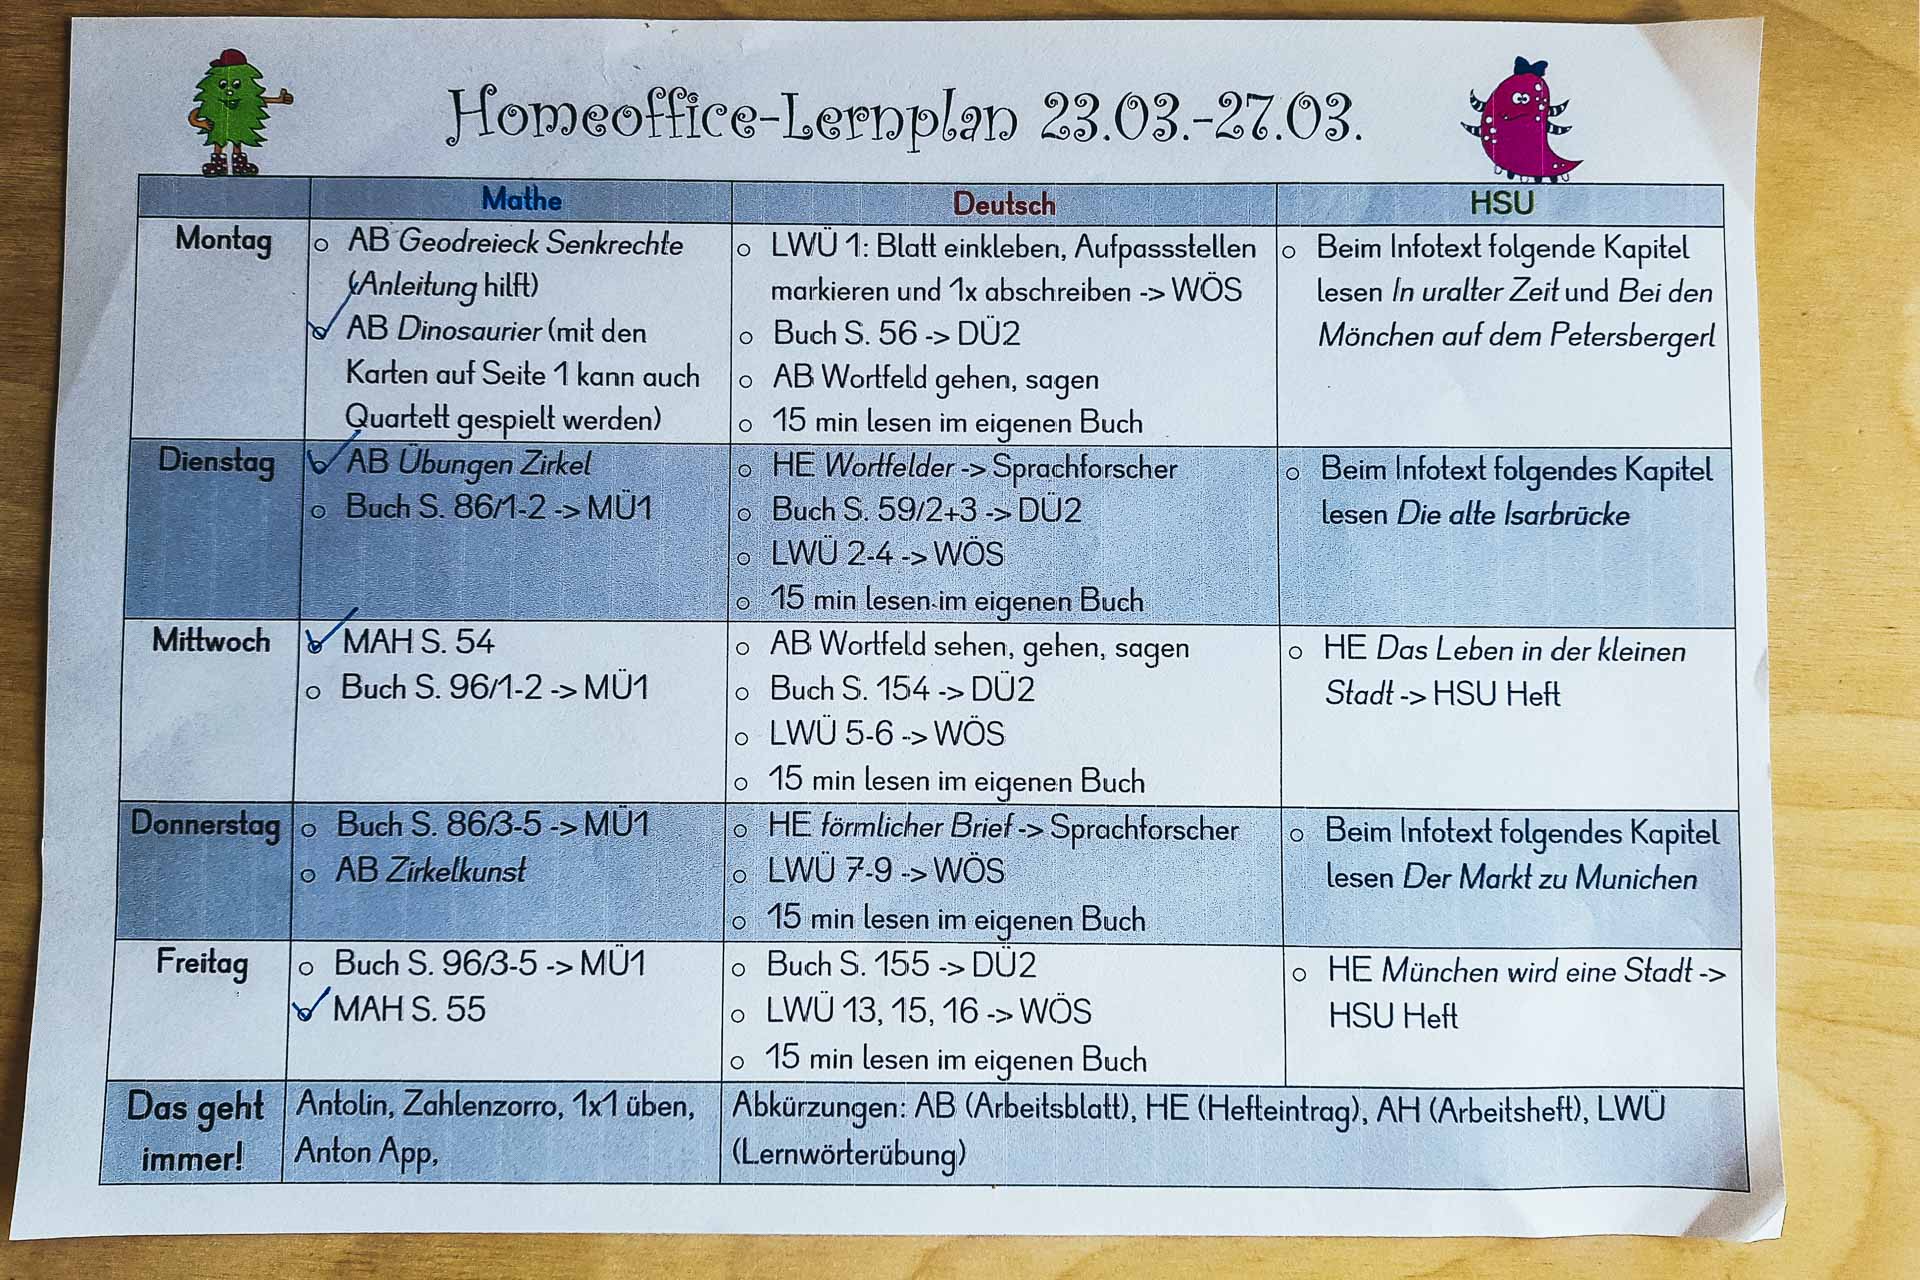 Homeoffice-Lernplan 23.03.-27.03.
Mathe
Deutsch
HSU
Montag
○ AB Geodreieck Senkrechte
(Anleitung hilft)
○ AB Dinosaurier (mit den
Karten auf Seite 1 kann auch
Quartett gespielt werden)
○ LWÜ 1: Blatt einkleben, Aufpassstellen
markieren und 1x abschreiben -> WÖS
○ Buch S. 56 -> DÜ2
○ AB Wortfeld gehen, sagen
○ 15 min lesen im eigenen Buch
○ Beim Infotext folgende Kapitel
lesen In uralter Zeit und Bei den
Mönchen auf dem Petersbergerl
Dienstag
○ AB Übungen Zirkel
○ Buch S. 86/1-2 -> MÜ1
○ HE Wortfelder -> Sprachforscher
○ Buch S. 59/2+3 -> DÜ2
○ LWÜ 2-4 -> WÖS
○ 15 min lesen im eigenen Buch
○ Beim Infotext folgendes Kapitel
lesen Die alte Isarbrücke
Mittwoch
○ MAH S. 54
○ Buch S. 96/1-2 -> MÜ1
○ AB Wortfeld sehen, gehen, sagen
○ Buch S. 154 -> DÜ2
○ LWÜ 5-6 -> WÖS
○ 15 min lesen im eigenen Buch
○ HE Das Leben in der kleinen
Stadt -> HSU Heft
Donnerstag
○ Buch S. 86/3-5 -> MÜ1
○ AB Zirkelkunst
○ HE förmlicher Brief -> Sprachforscher
○ LWÜ 7-9 -> WÖS
○ 15 min lesen im eigenen Buch
○ Beim Infotext folgendes Kapitel
lesen Der Markt zu Munichen
Freitag
○ Buch S. 96/3-5 -> MÜ1
○ MAH S. 55
○ Buch S. 155 -> DÜ2
○ LWÜ 13, 15, 16 -> WÖS
○ 15 min lesen im eigenen Buch
○ HE München wird eine Stadt ->
HSU Heft
Das geht
immer!
Antolin, Zahlenzorro, 1x1 üben,
Anton App,
Abkürzungen: AB (Arbeitsblatt), HE (Hefteintrag), AH (Arbeitsheft), LWÜ
(Lernwörterübung)